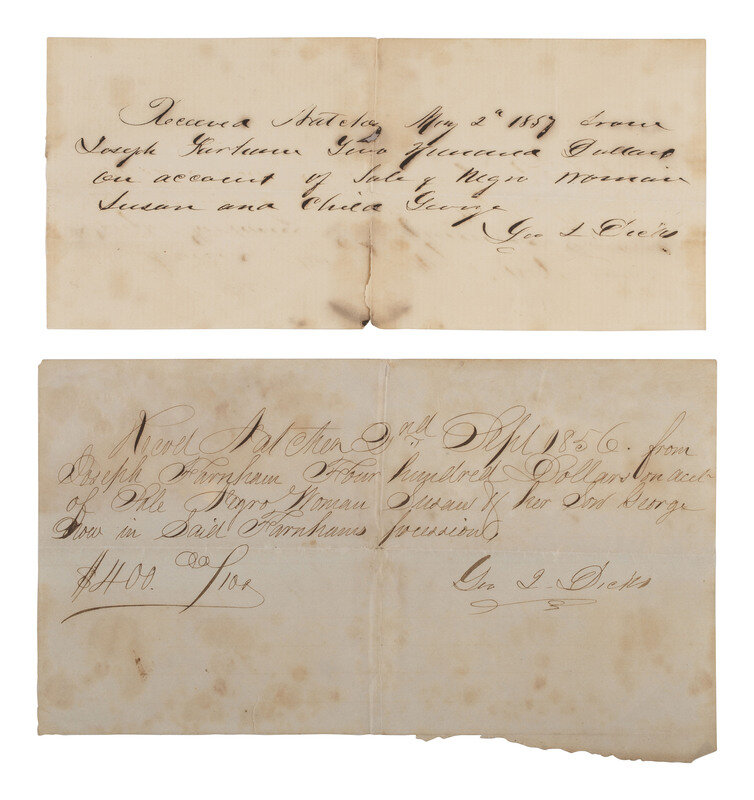 Received Natchez May 2d 1857 from
Joseph Farnham Two Hundred Dollars
on account of Sale of Negro Woman
Susan and Child George
Geo L Dicks
Recvd Natchez 2nd Sept 1856. from
Joseph Farnham Four hundred Dollars on act
of Sale Negro Woman Susan & her Son George
Now in Said Farnhams
$400. 00/100
Geo L Dicks